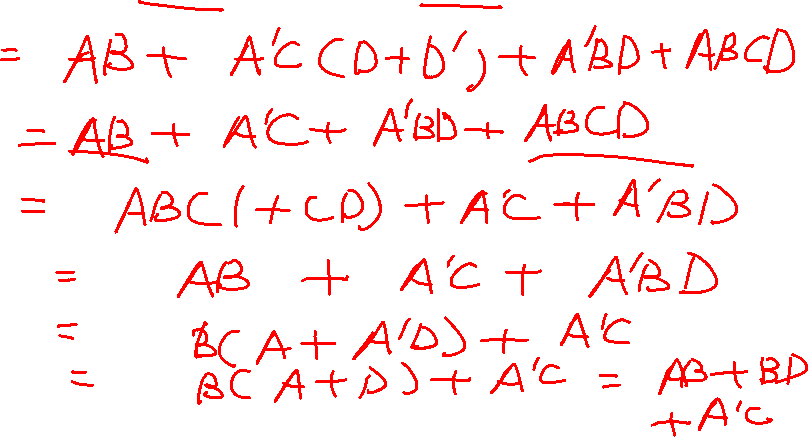 = AB + A'C (D+D') + A'BD + ABCD
= AB + A'C + A'BD + ABCD
= AB(1+CD) + A'C + A'BD
= AB + A'C + A'BD
= B(A + A'D) + A'C
= B(A+D) + A'C = AB+BD
+A'C